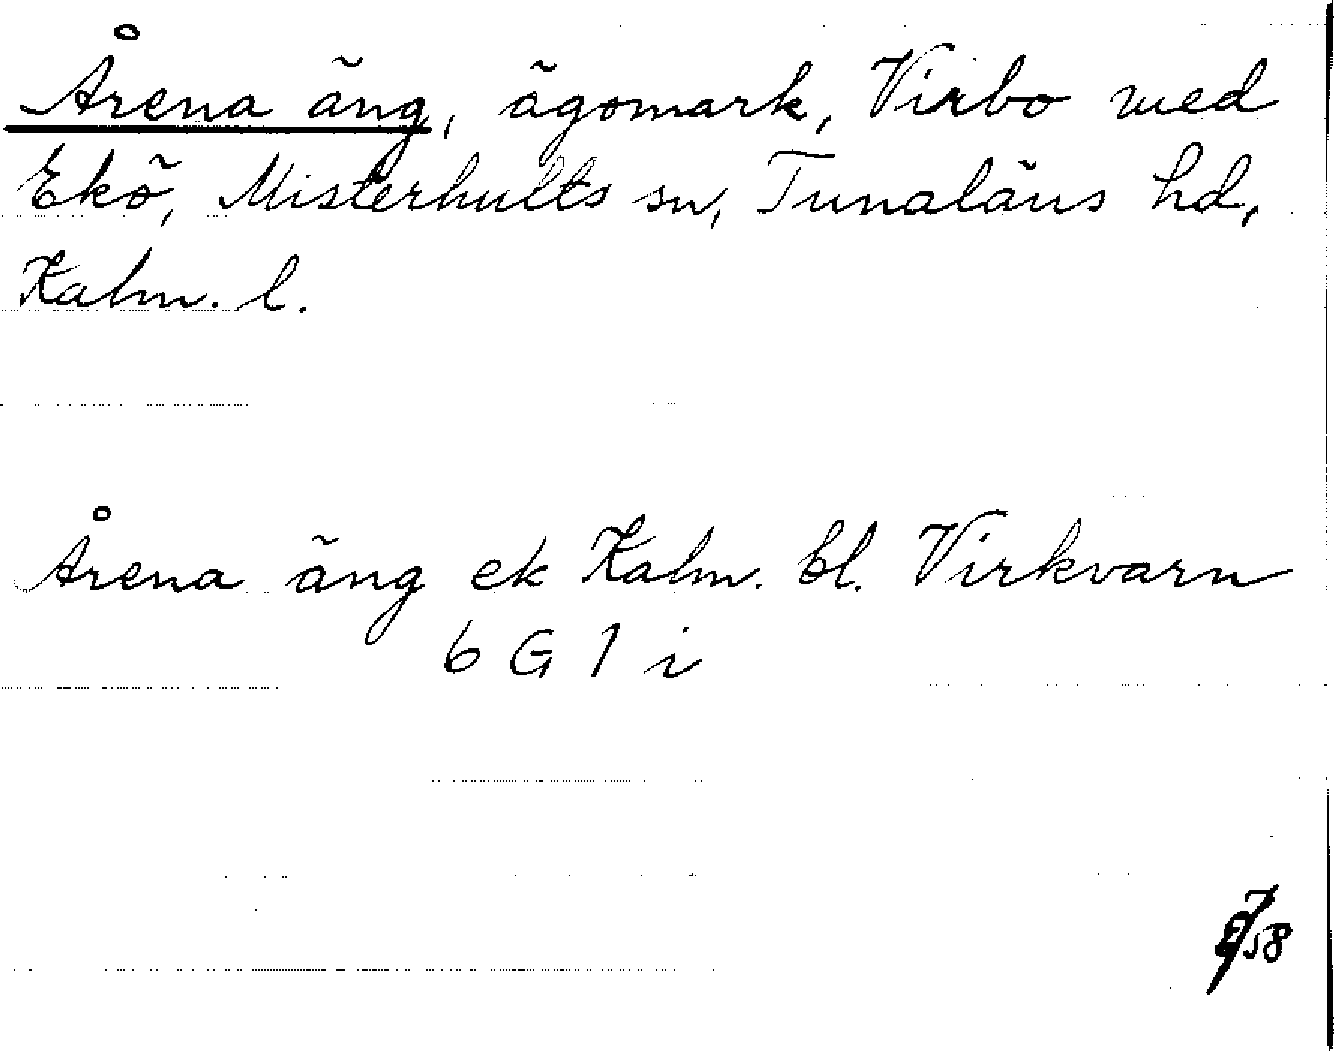 Årena äng, ägomark, Virbo med
Ekö, Misterhults sn, Tunaläns hd,
Kalm. l.
Årena äng ek Kalm. bl. Virkvarn
6 G 1 i